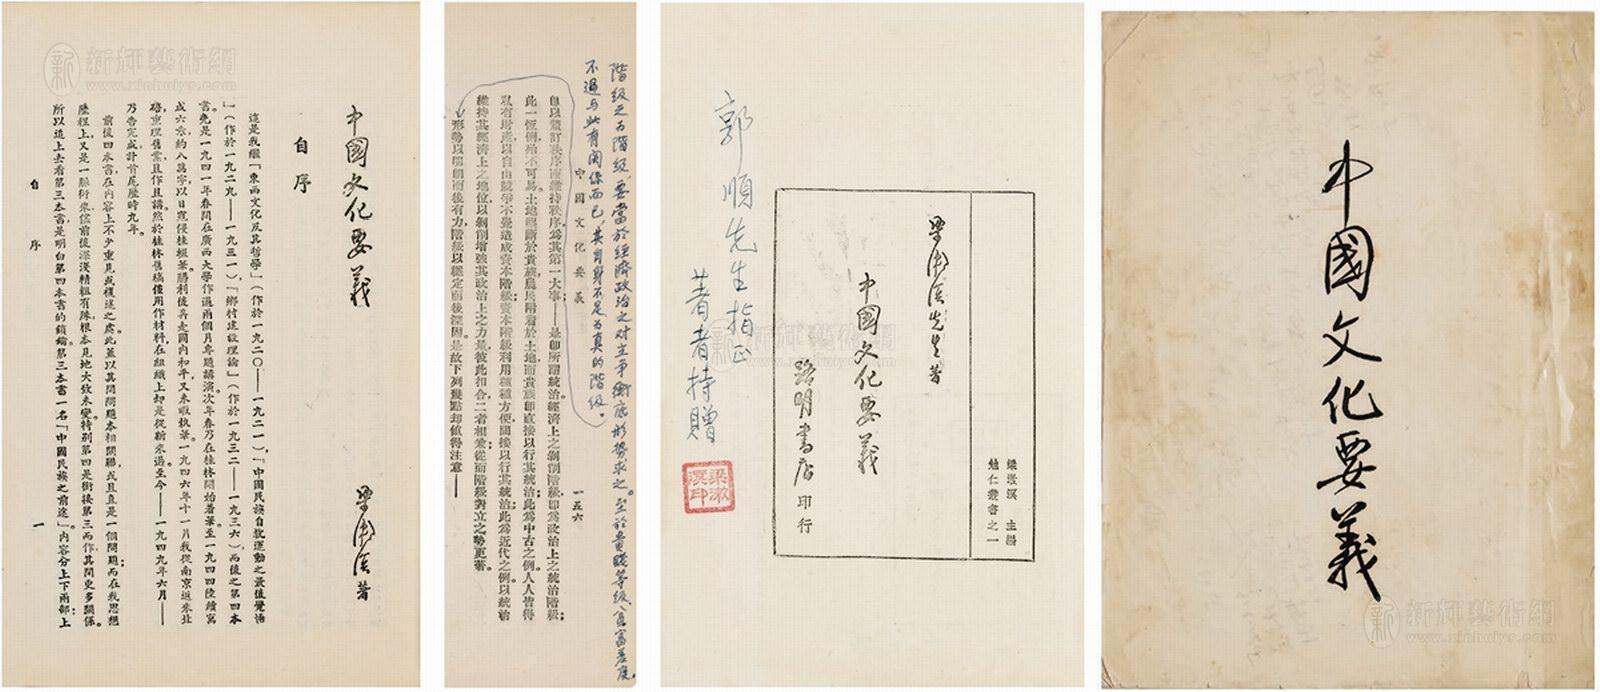 中國文化要義
梁漱溟著
自序
這是我繼「東西文化及其哲學」(作於一九二〇——一九二一),「中國民族自救運動之最後覺悟
」(作於一九二九——一九三一),「鄉村建設理論」(作於一九三二——一九三六),而後之第四本
書。先是一九四一年春間在廣西大學作過兩個月專題講演。次年春乃在桂林開始着筆。至一九四四陸續寫
成六章,約八萬字。以日寇侵桂輟筆。勝利後奔走國內和平,又未暇執筆。一九四六年十一月我從南京返來北
碚,重理舊業,且作且講。然於桂林舊稿僅用作材料,在組織上却是從新來過。至今——一九四九年六月——
乃告完成,計首尾歷時九年。
前後四本書,在內容上不少重見或複述之處。此蓋以其問題本相關聯,或且直是一個問題;而在我思想
歷程上,又是一脈衍來,儘前後深淺精粗有殊,根本見地大致未變。特別第四是銜接第三而作,其間更多關係。
所以追上去看第三本書,是明白第四本書的鎖鑰。第三本書一名「中國民族之前途」。內容分上下兩部:上
自序
一
階級之为階級,要當於經濟政治之对立爭衡底形勢求之。至於貴賤等級、貧富差度,
不過与此有関係而已,其自身不足为真的階級。
中國文化要義
一五六
自以釐訂秩序而維持秩序,為其第一大事——是即所謂統治。經濟上之剝削階級,即為政治上之統治階級;
此一恆例,殆不可易。土地壟斷於貴族,農民附着於土地,而貴族即直接以行其統治;此為中古之例。人人皆得
私有財產,以自由競爭不覺造成資本階級;資本階級利用種種方便,間接以行其統治;此為近代之例。以統治
維持其經濟上之地位,以剝削增強其政治上之力量,彼此扣合,二者相兼,從而階級對立之勢更著。
形勢以明朗而後有力,階級以經定而後深固。是故下列幾點却值得注意——
梁漱溟 主編
勉仁叢書之一
梁漱溟先生著
中國文化要義
路明書店印行
郭順先生指正
著者持贈
梁漱溟印
中國文化要義
新輝藝術網
www.xinhuiys.com